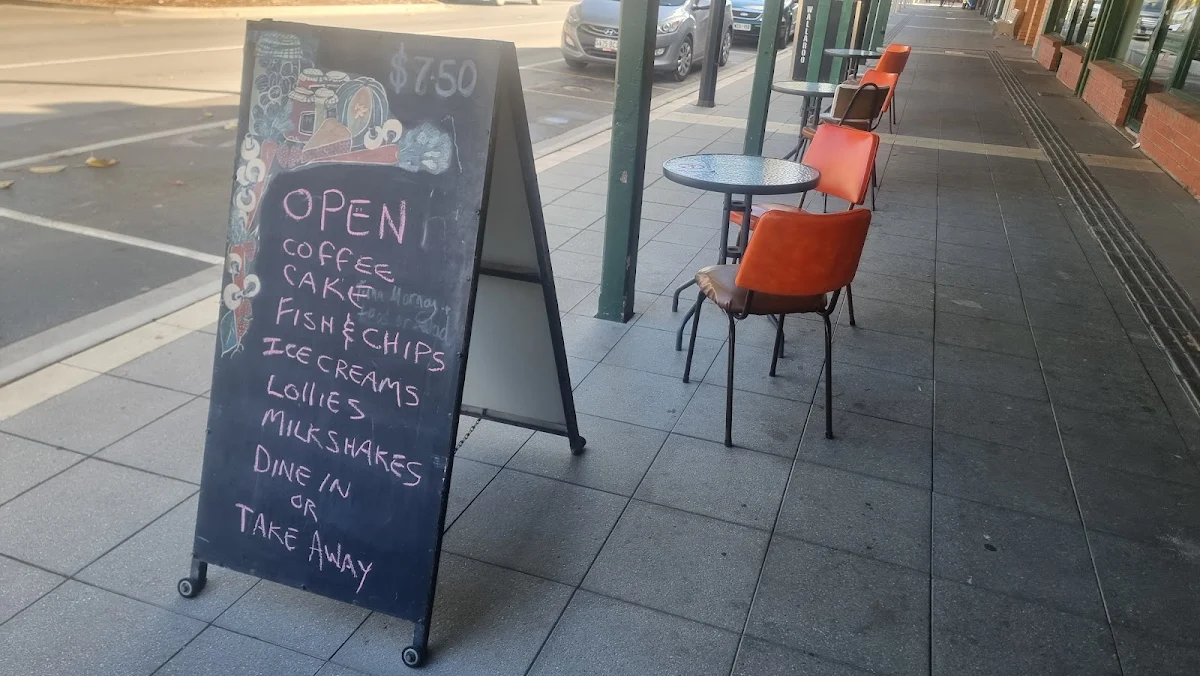 $7.50
OPEN
COFFEE
CAKE
FISH & CHIPS
ICE CREAMS
LOLLIES
MILKSHAKES
DINE IN
OR
TAKE AWAY
WALLAROO